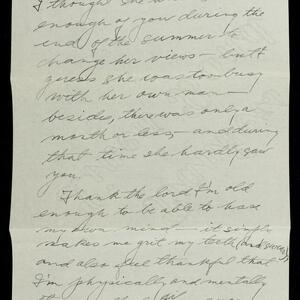 I though she
enough of you during the
end of the summer to
change her views — but I
guess she was too busy
with her own man —
besides, there was only a
month or less — and during
that time she hardly saw
you.
Thank the lord I'm old
enough to be able to have
my own mind — it simply
makes me grit my teeth (and swear)
and also feel thankful that
I'm physically and mentally